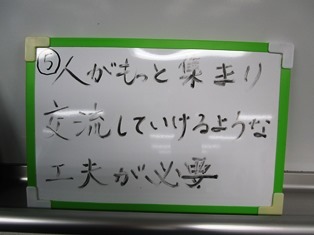 ⑤人がもっと集まり
交流していけるような
工夫が必要